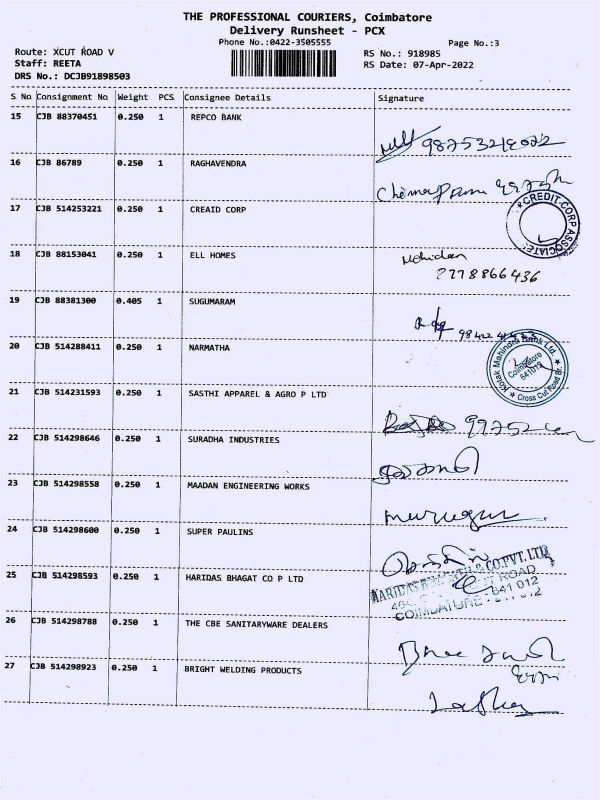 THE PROFESSIONAL COURIERS, Coimbatore
Delivery Runsheet - PCX
Phone No.:0422-3505555
Page No.:3
Route: XCUT ROAD V
RS No.: 918985
Staff: REETA
RS Date: 07-Apr-2022
DRS No.: DCJB91898503
S No Consignment No Weight PCS Consignee Details Signature
15 CJB 88370451 0.250 1 REPCO BANK
16 CJB 86789 0.250 1 RAGHAVENDRA
17 CJB 514253221 0.250 1 CREAID CORP
CREDIT CORP ASSOCIATE
18 CJB 88153041 0.250 1 ELL HOMES
Mohidan
19 CJB 88381300 0.405 1 SUGUMARAM
20 CJB 514288411 0.250 1 NARMATHA
Kotak Mahindra Bank Ltd.
Coimbatore
641012
Cross Cut Road Br.
21 CJB 514231593 0.250 1 SASTHI APPAREL & AGRO P LTD
22 CJB 514298646 0.250 1 SURADHA INDUSTRIES
23 CJB 514298558 0.250 1 MAADAN ENGINEERING WORKS
murugan
24 CJB 514298600 0.250 1 SUPER PAULINS
25 CJB 514298593 0.250 1 HARIDAS BHAGAT CO P LTD
HARIDAS BHAGAT & CO.PVT. LTD
ROAD
COIMBATORE - 641 012
26 CJB 514298788 0.250 1 THE CBE SANITARYWARE DEALERS
27 CJB 514298923 0.250 1 BRIGHT WELDING PRODUCTS